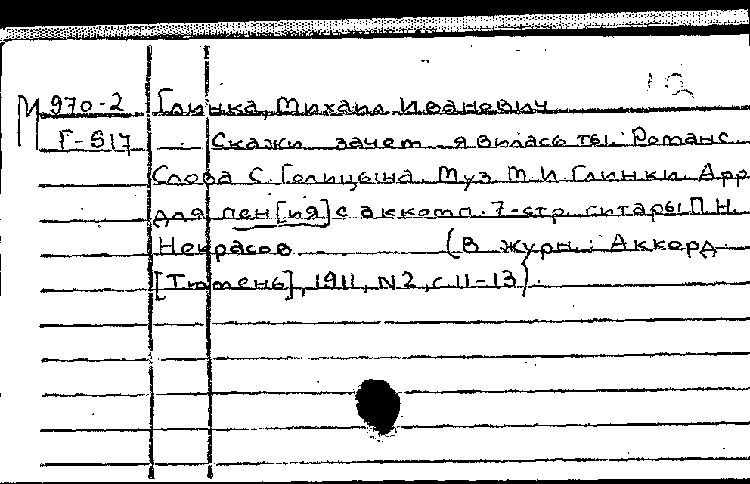 М 970-2 Глинка, Михаил Иванович
Г-517 Скажи зачем явилась ты. Романс.
Слова С. Голицына. Муз М. И. Глинки. Арр
для пен[ия] с аккомп. 7-стр. гитары П. Н.
Некрасов (В журн.: Аккорд
[Тюмень], 1911, N2, с 11-13).